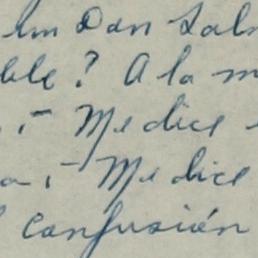 Dan Sal
ble? A la m
,- Me dice
a,- Me dice
confusión